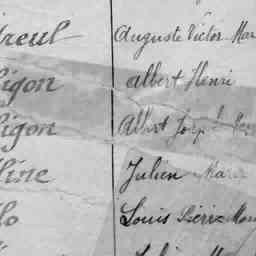 reul Auguste Victor Mar
igon Albert Henri
igon Albert Josph
line Julien Marie
lo Louis Pierre Mar